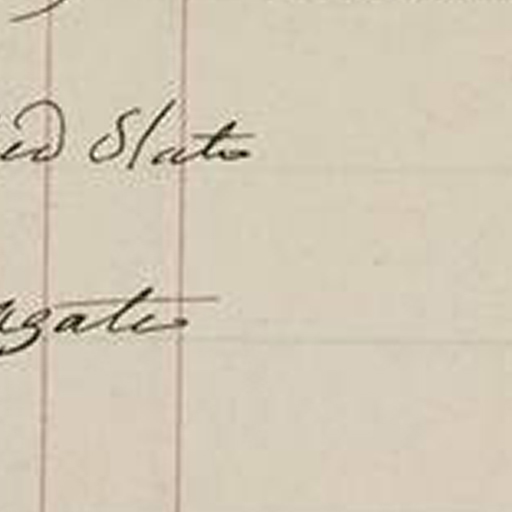 ed States
gates